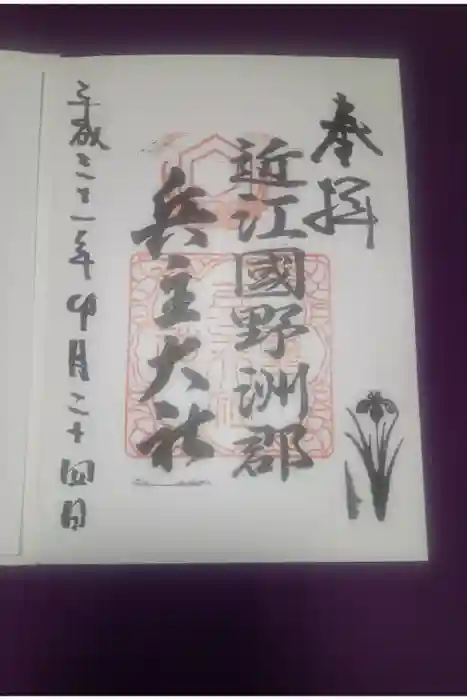 奉拝
近江國野洲郡
兵主大社
平成三十一年卯月二十四日